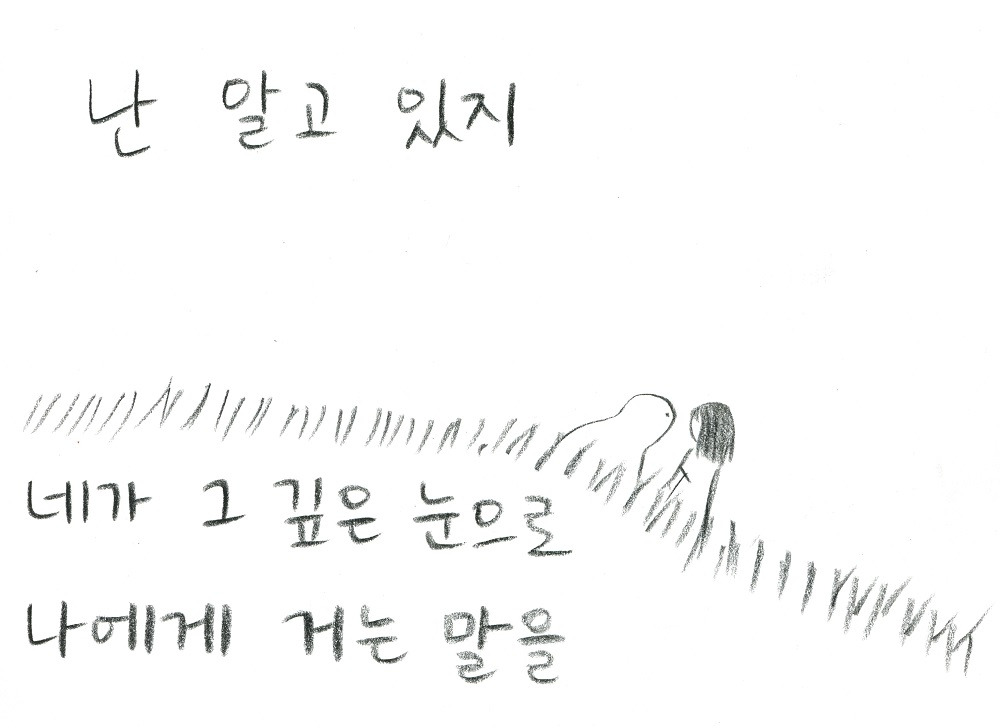 난 알고 있지
네가 그 깊은 눈으로
나에게 거는 말을